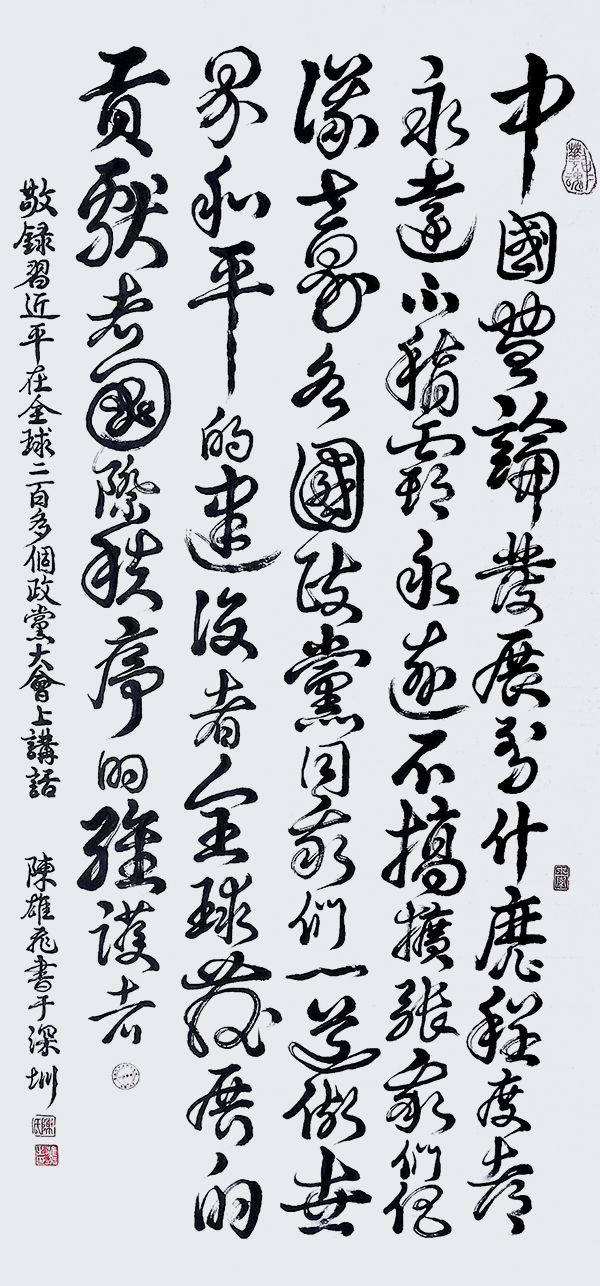 中國無論發展到什麽程度都
永遠不稱霸永遠不搞擴張我們倡
議世界各國政黨同我們一道做世
界和平的建設者全球發展的
貢獻者國際秩序的維護者
敬録習近平在全球二百多個政黨大會上講話 陳雄飛書于深圳